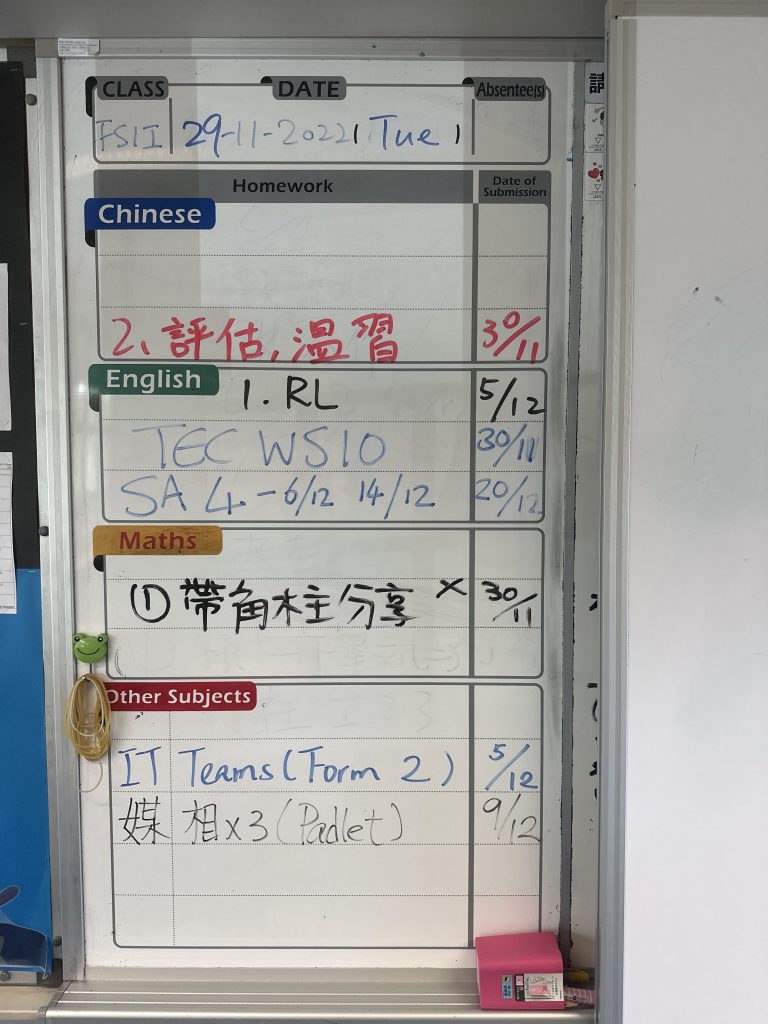 CLASS DATE Absentee(s)
FS1I 29-11-2022 ( Tue )
Homework Date of Submission
Chinese
2、評估,溫習 30/11
English
1. RL 5/12
TEC WS10 30/11
SA 4 - 6/12 14/12 20/12
Maths
① 帶角柱分享 × 30/11
Other Subjects
IT Teams (Form 2) 5/12
媒 相x3 (Padlet) 9/12